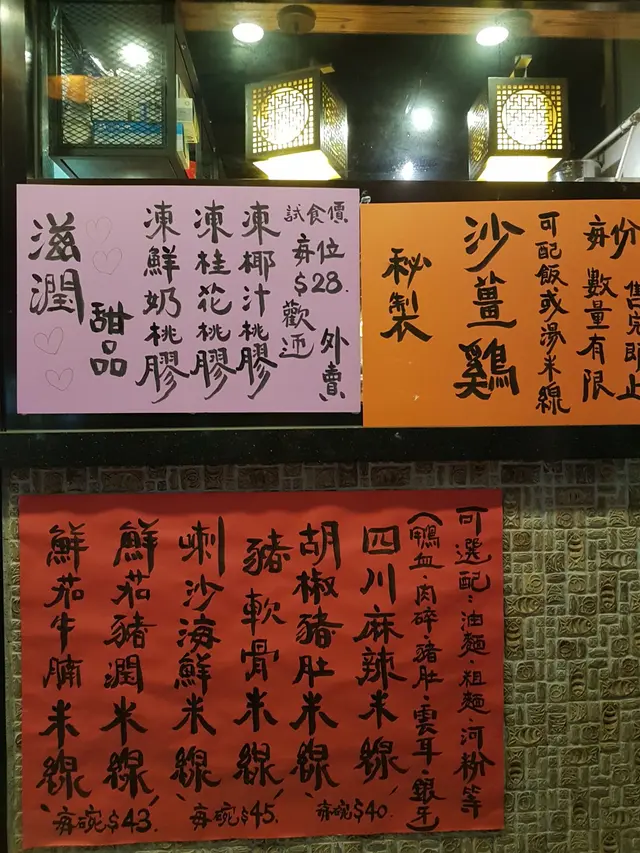 滋潤
甜品
凍鮮奶桃膠
凍桂花桃膠
凍椰汁桃膠
試食價
每位
$28.
歡迎
外賣
秘製
沙薑鷄
可配飯或湯米線
每份
數量有限
鮮茄牛腩米線
鮮茄豬潤米線
每碗$43.
喇沙海鮮米線
豬軟骨米線
每碗$45.
胡椒豬肚米線
四川麻辣米線
每碗$40.
(鴨血、肉碎、豬肚、雲耳、銀牙)
可選配：油麵、粗麵、河粉等